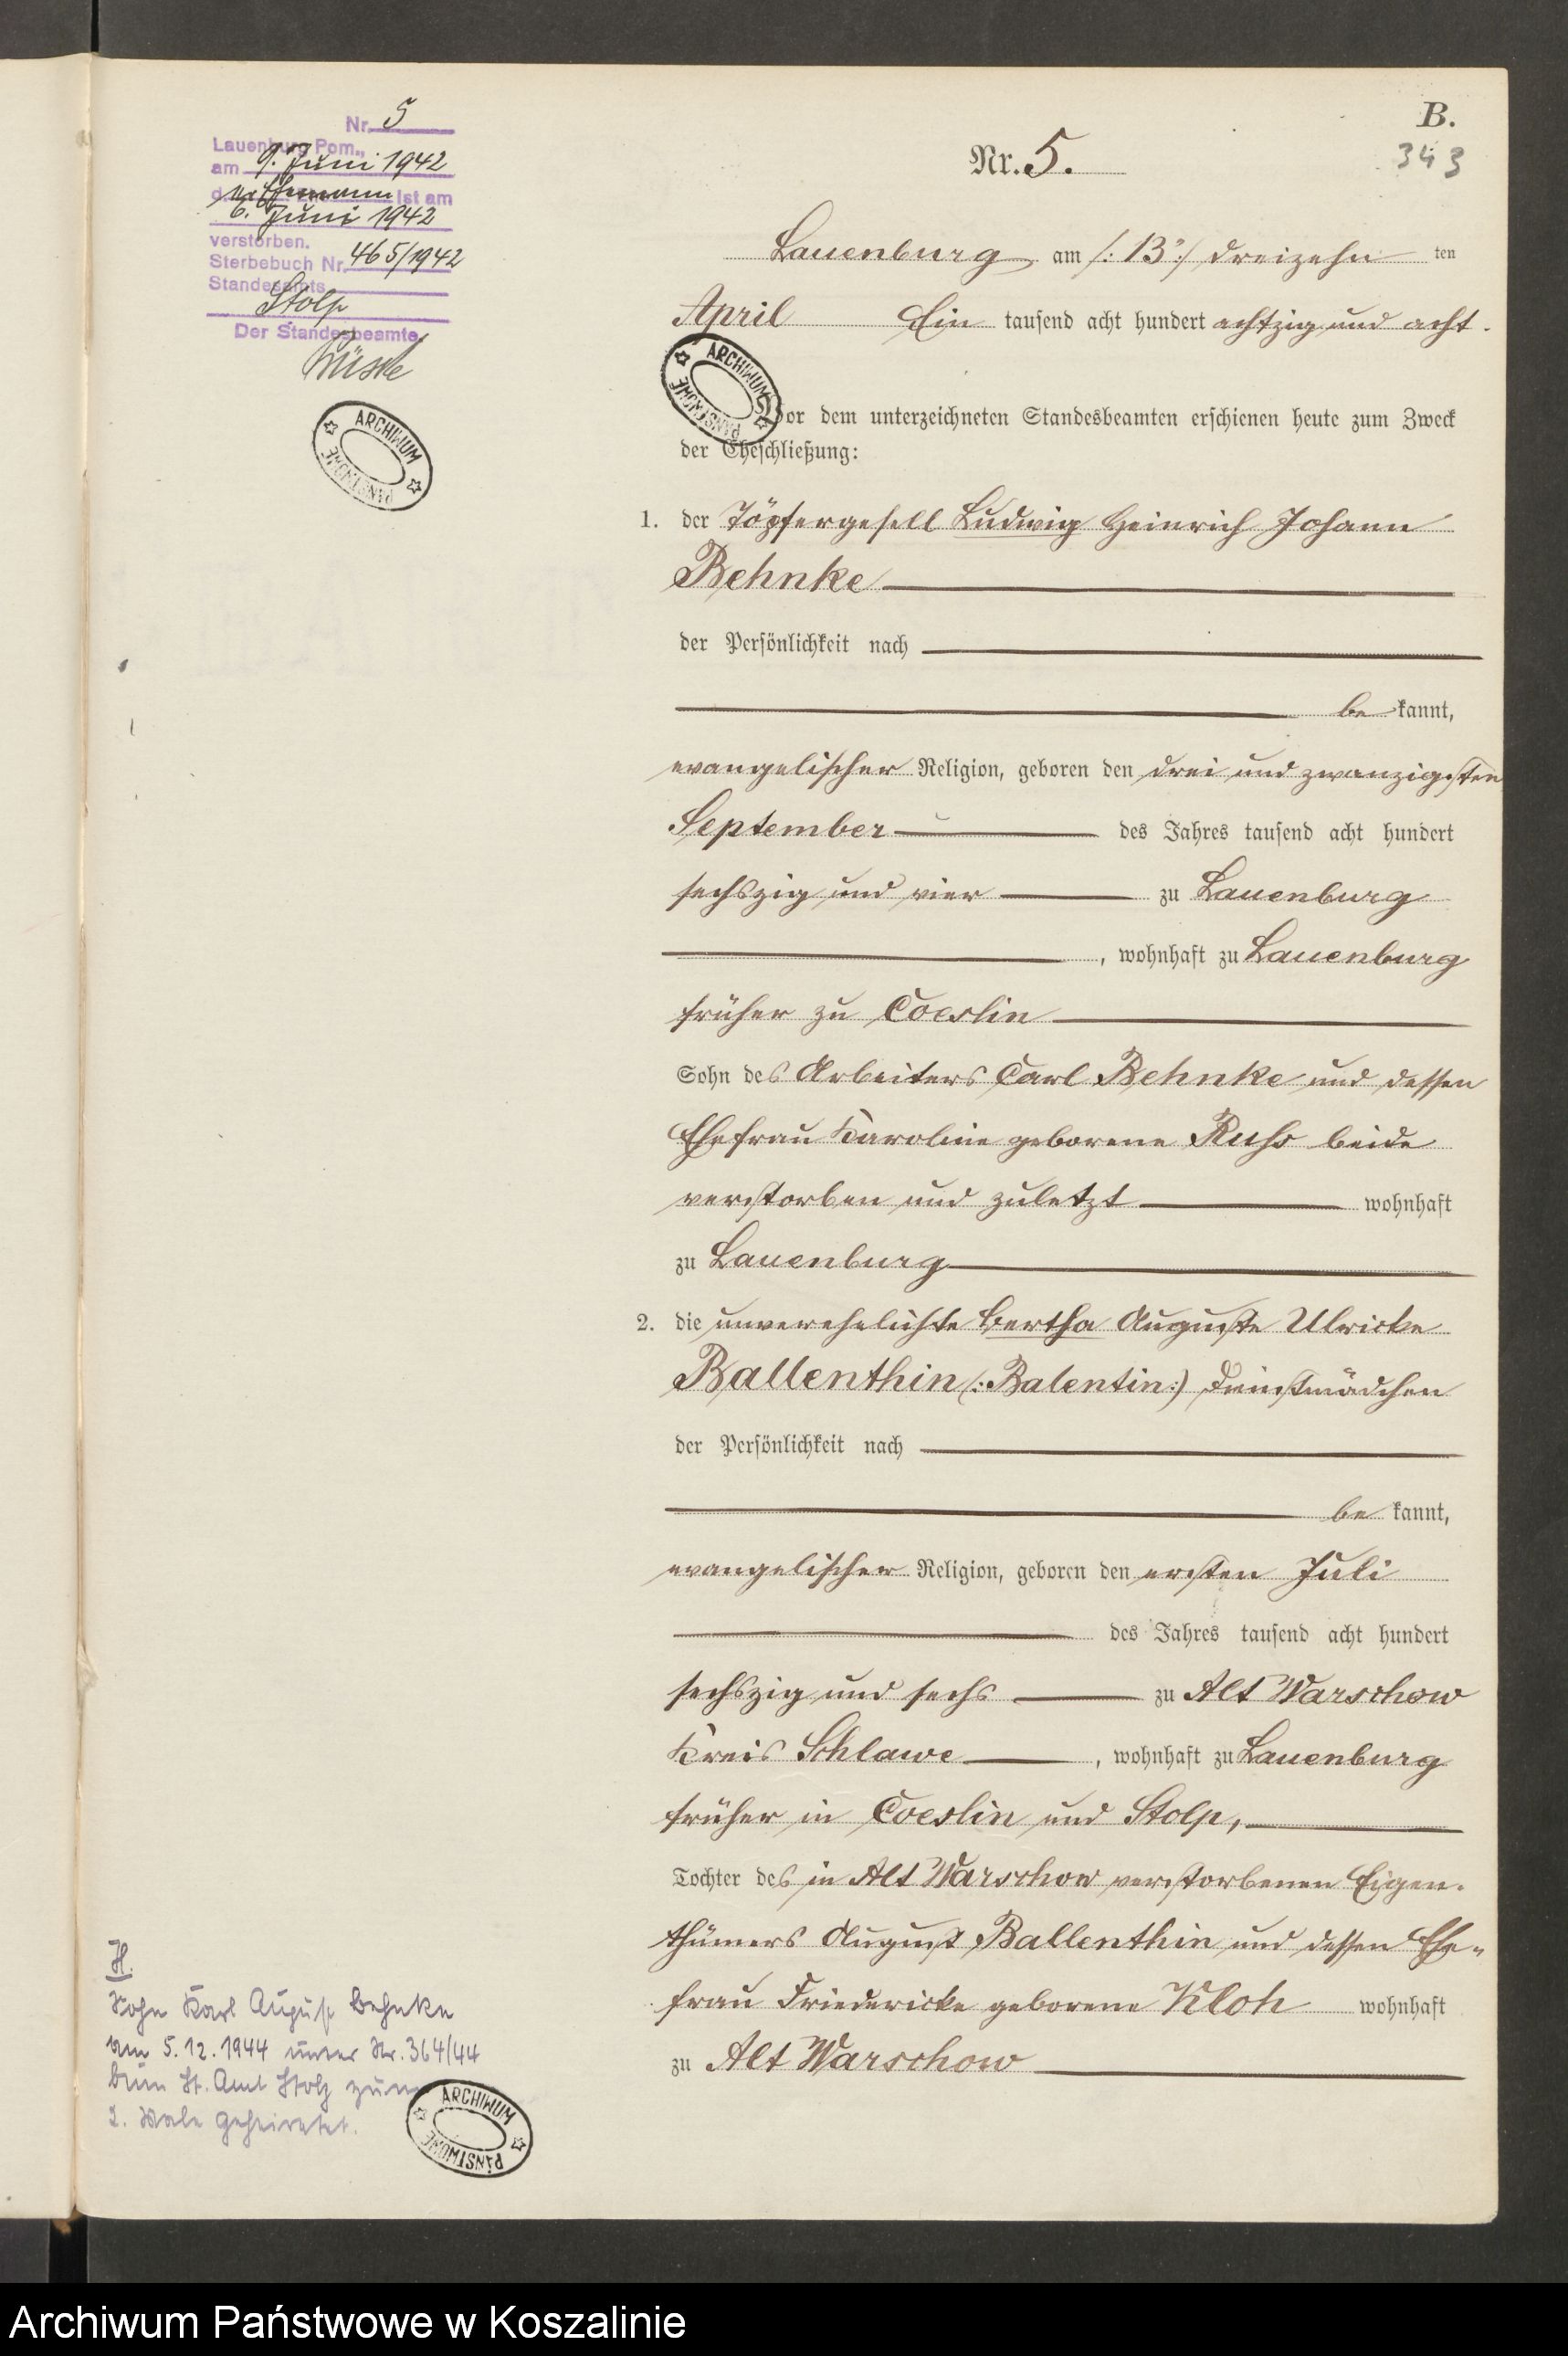 Nr. 5
Lauenburg Pom.,
am 9. Juni 1942
der Ehemann ist am
6. Juni 1942
verstorben.
Sterbebuch Nr. 465/1942
Standesamts
Stolp
Der Standesbeamte
ARCHIWUM PAŃSTWOWE
B.
343
Nr. 5.
Lauenburg am /: 13 :/ dreizehn ten
April Ein tausend acht hundert achtzig und acht.
ARCHIWUM PAŃSTWOWE
Vor dem unterzeichneten Standesbeamten erschienen heute zum Zweck
der Eheschließung:
1. der Töpfergesell Ludwig Heinrich Johann
Behnke
der Persönlichkeit nach
be kannt,
evangelischer Religion, geboren den drei und zwanzigsten
September des Jahres tausend acht hundert
sechszig und vier zu Lauenburg
, wohnhaft zu Lauenburg
früher zu Coeslin
Sohn des Arbeiters Carl Behnke und dessen
Ehefrau Karoline geborene Ruhs beide
verstorben und zuletzt wohnhaft
zu Lauenburg
2. die unverehelichte Bertha Auguste Ulricke
Ballenthin (: Balentin :) Dienstmädchen
der Persönlichkeit nach
be kannt,
evangelischer Religion, geboren den ersten Juli
des Jahres tausend acht hundert
sechszig und sechs zu Alt Warschow
Kreis Schlawe , wohnhaft zu Lauenburg
früher in Coeslin und Stolp,
Tochter des in Alt Warschow verstorbenen Eigen-
thümers August Ballenthin und dessen Ehe-
frau Friedericke geborene Kloh wohnhaft
zu Alt Warschow
H.
Sohn Karl August Behnke
am 5.12.1944 unter Nr. 364/44
beim St. Amt Stolp zum
2. Male geheiratet.
ARCHIWUM PAŃSTWOWE
Archiwum Państwowe w Koszalinie